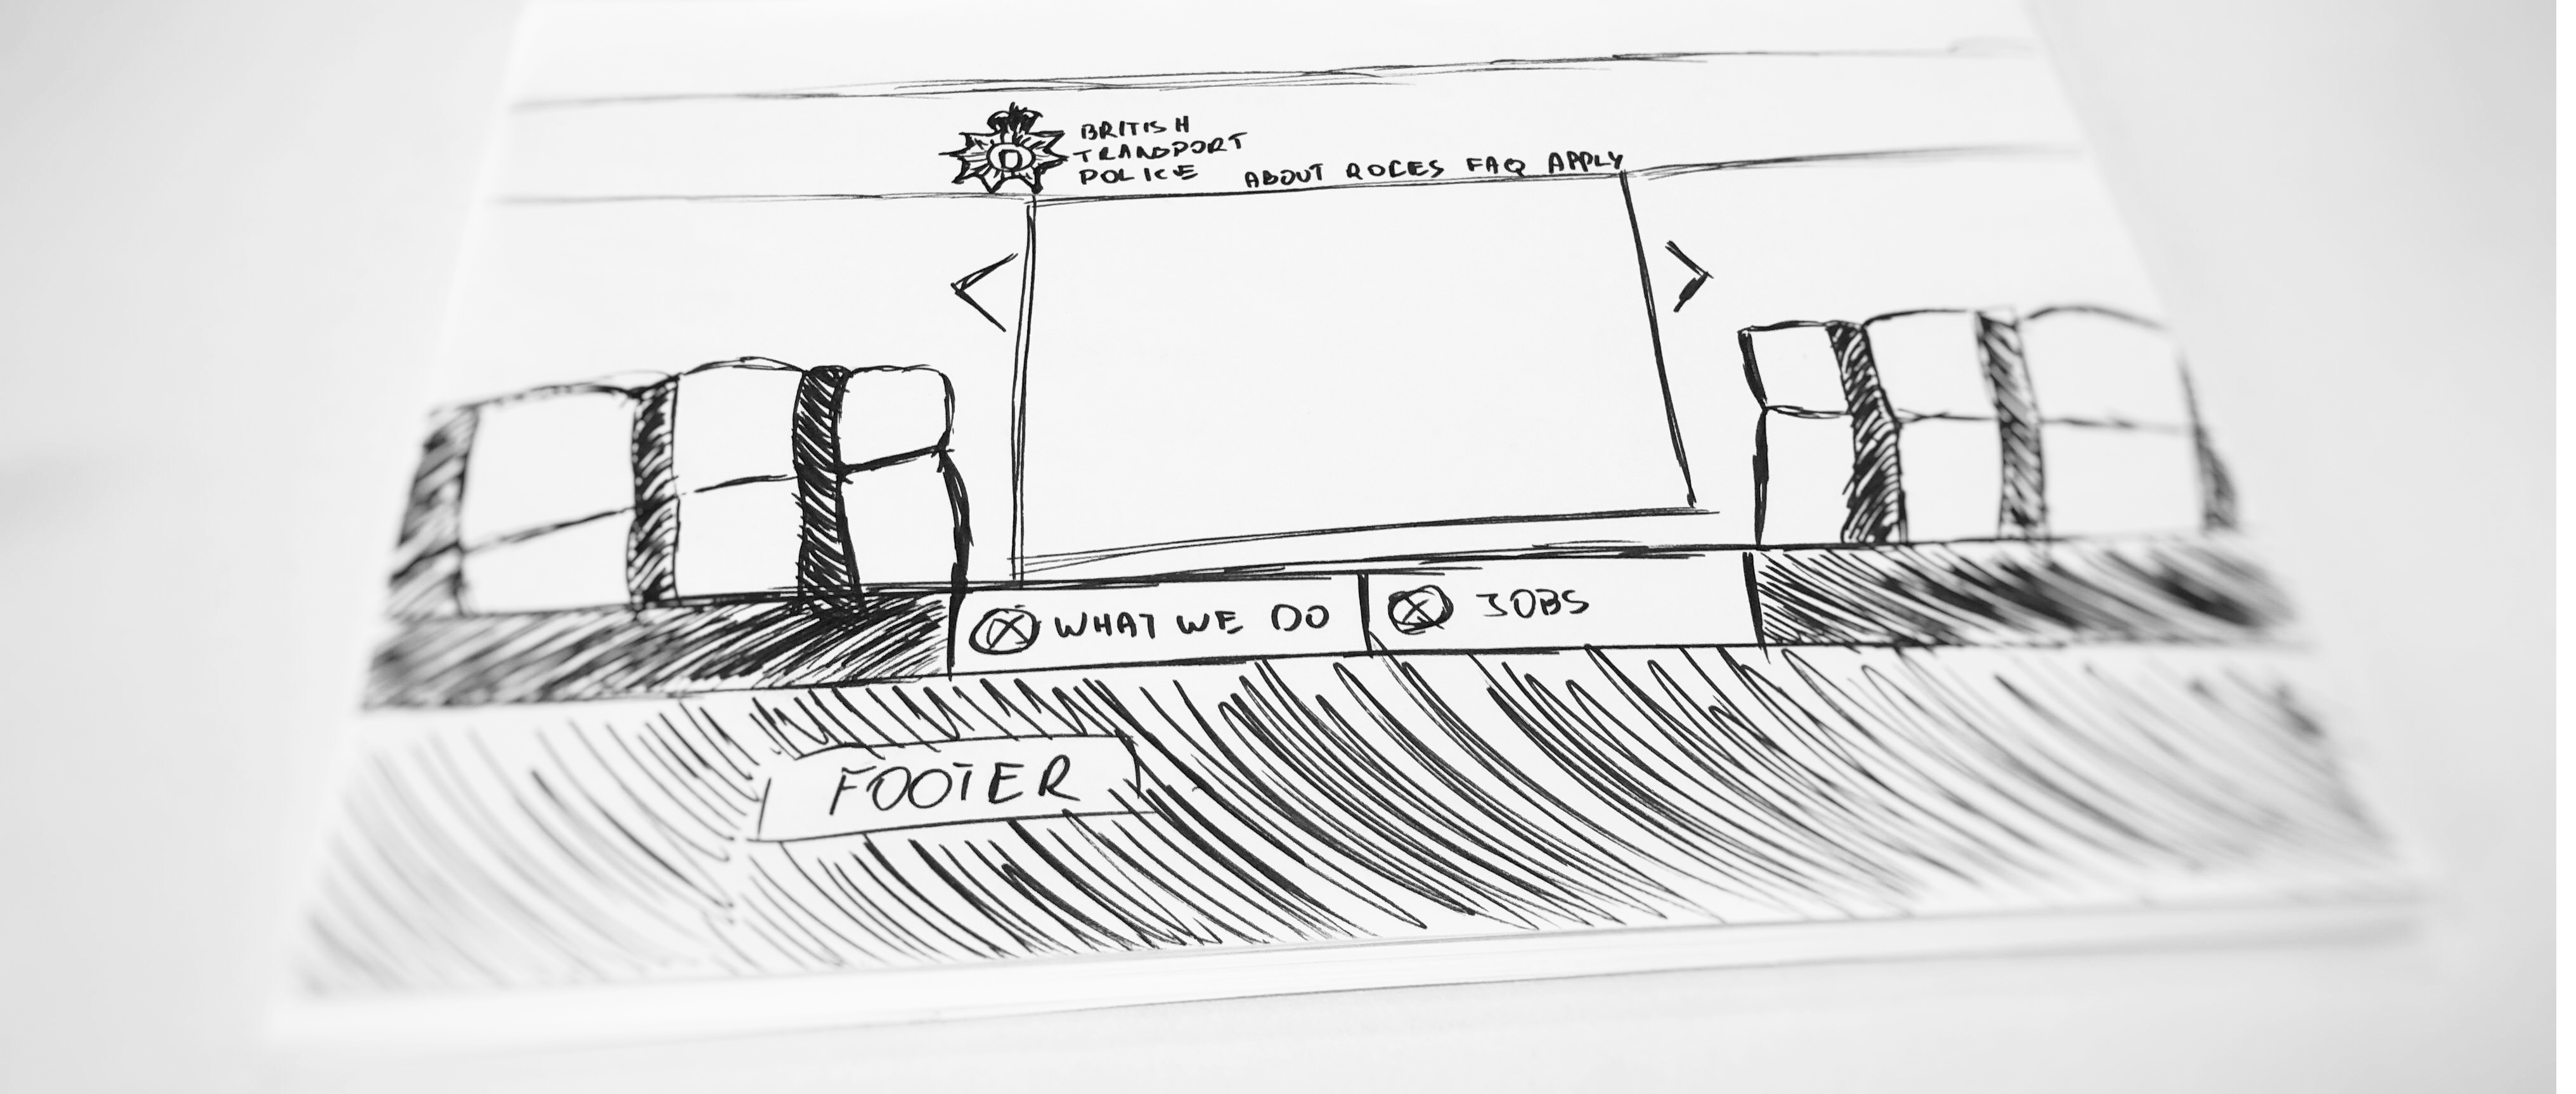 BRITISH
TRANSPORT
POLICE
ABOUT ROLES FAQ APPLY
< >
WHAT WE DO JOBS
FOOTER